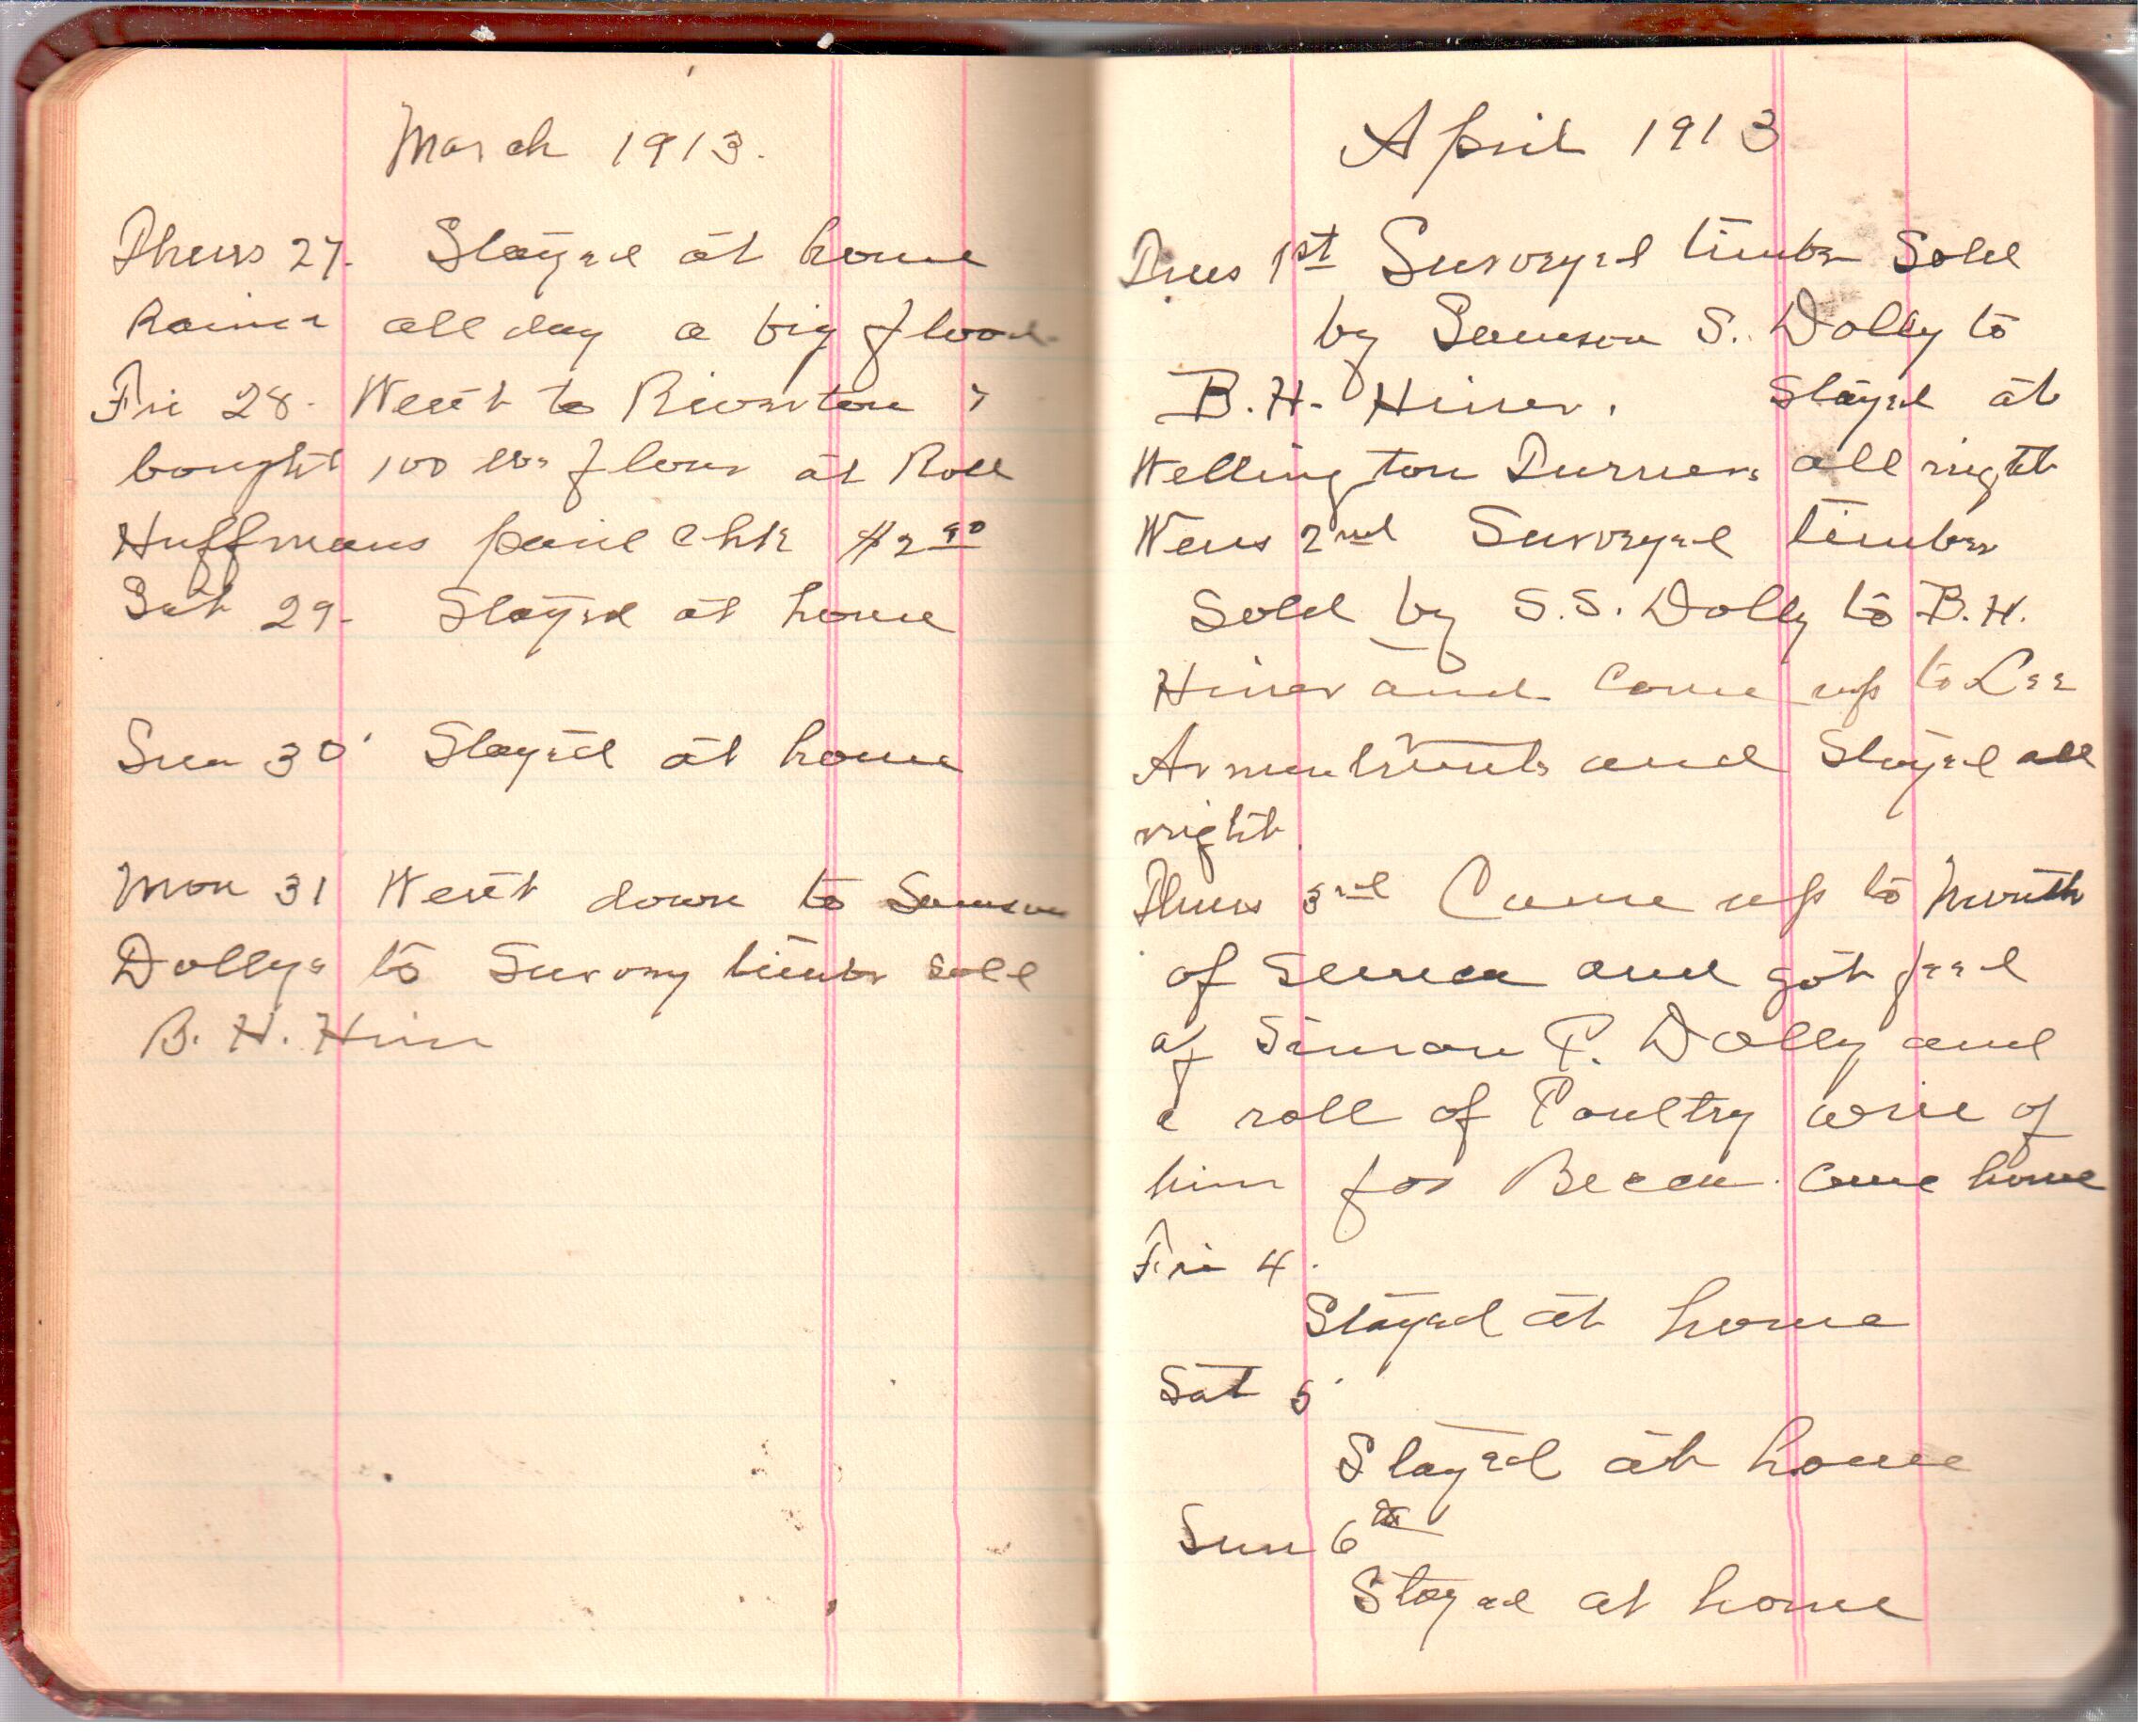 March 1913.
Thurs 27. Stayed at home
Rained all day a big flood
Fri 28. Went to Riverton &
bought 100 lbs flour at Roll
Huffmans paid chk $2.90
Sat 29. Stayed at home
Sun 30 Stayed at home
Mon 31 Went down to Samson
Dollys to Survey timber sold
B. H. Hiner
April 1913
Tues 1st Surveyed timber Sold
by Samson S. Dolly to
B. H. Hiner. Stayed at
Wellington Turners all night
Wens 2nd Surveyed timber
Sold by S. S. Dolly to B. H.
Hiner and Come up to Lee
Armentrouts and Stayed all
night.
Thurs 3rd Came up to Mouth
of Seneca and got feed
of Simon P. Dolly and
a roll of Poultry wire of
him for Becca. Came home
Fri 4.
Stayed at home
Sat 5
Stayed at home
Sun 6th
Stayed at home